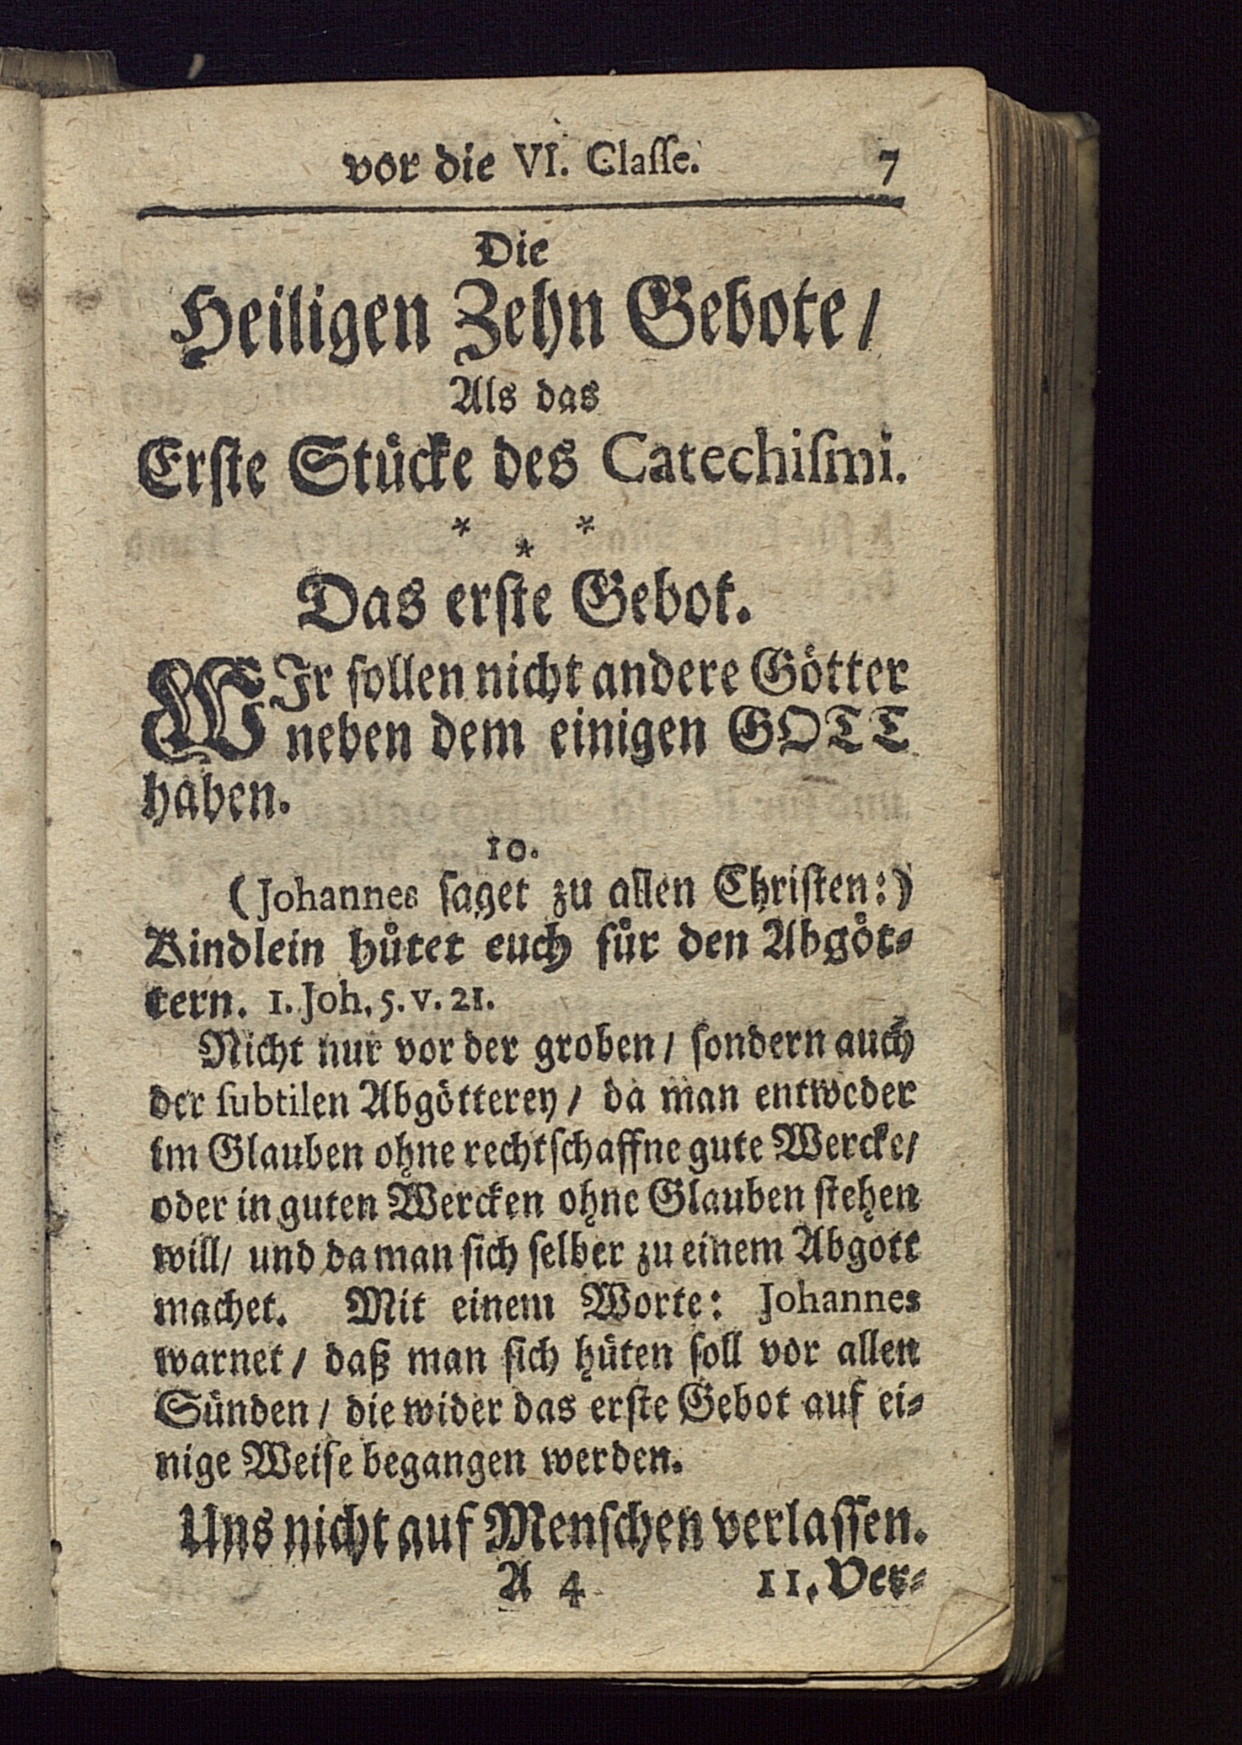 vor die VI. Claſſe. 7
Die
Heiligen Zehn Gebote/
Als das
Erſte Stücke des Catechiſmi.
* * *
Das erſte Gebot.
WIr ſollen nicht andere Götter
neben dem einigen GOTT
haben.
10.
(Johannes ſaget zu allen Chriſten:)
Kindlein hütet euch für den Abgöt-
tern. 1. Joh. 5. v. 21.
Nicht nur vor der groben/ ſondern auch
der ſubtilen Abgötterey/ da man entweder
im Glauben ohne rechtſchaffne gute Wercke/
oder in guten Wercken ohne Glauben ſtehen
will/ und da man ſich ſelber zu einem Abgott
machet. Mit einem Worte: Johannes
warnet/ daß man ſich hüten ſoll vor allen
Sünden/ die wider das erſte Gebot auf ei-
nige Weiſe begangen werden.
Uns nicht auf Menſchen verlaſſen.
A 4 11. Ver-